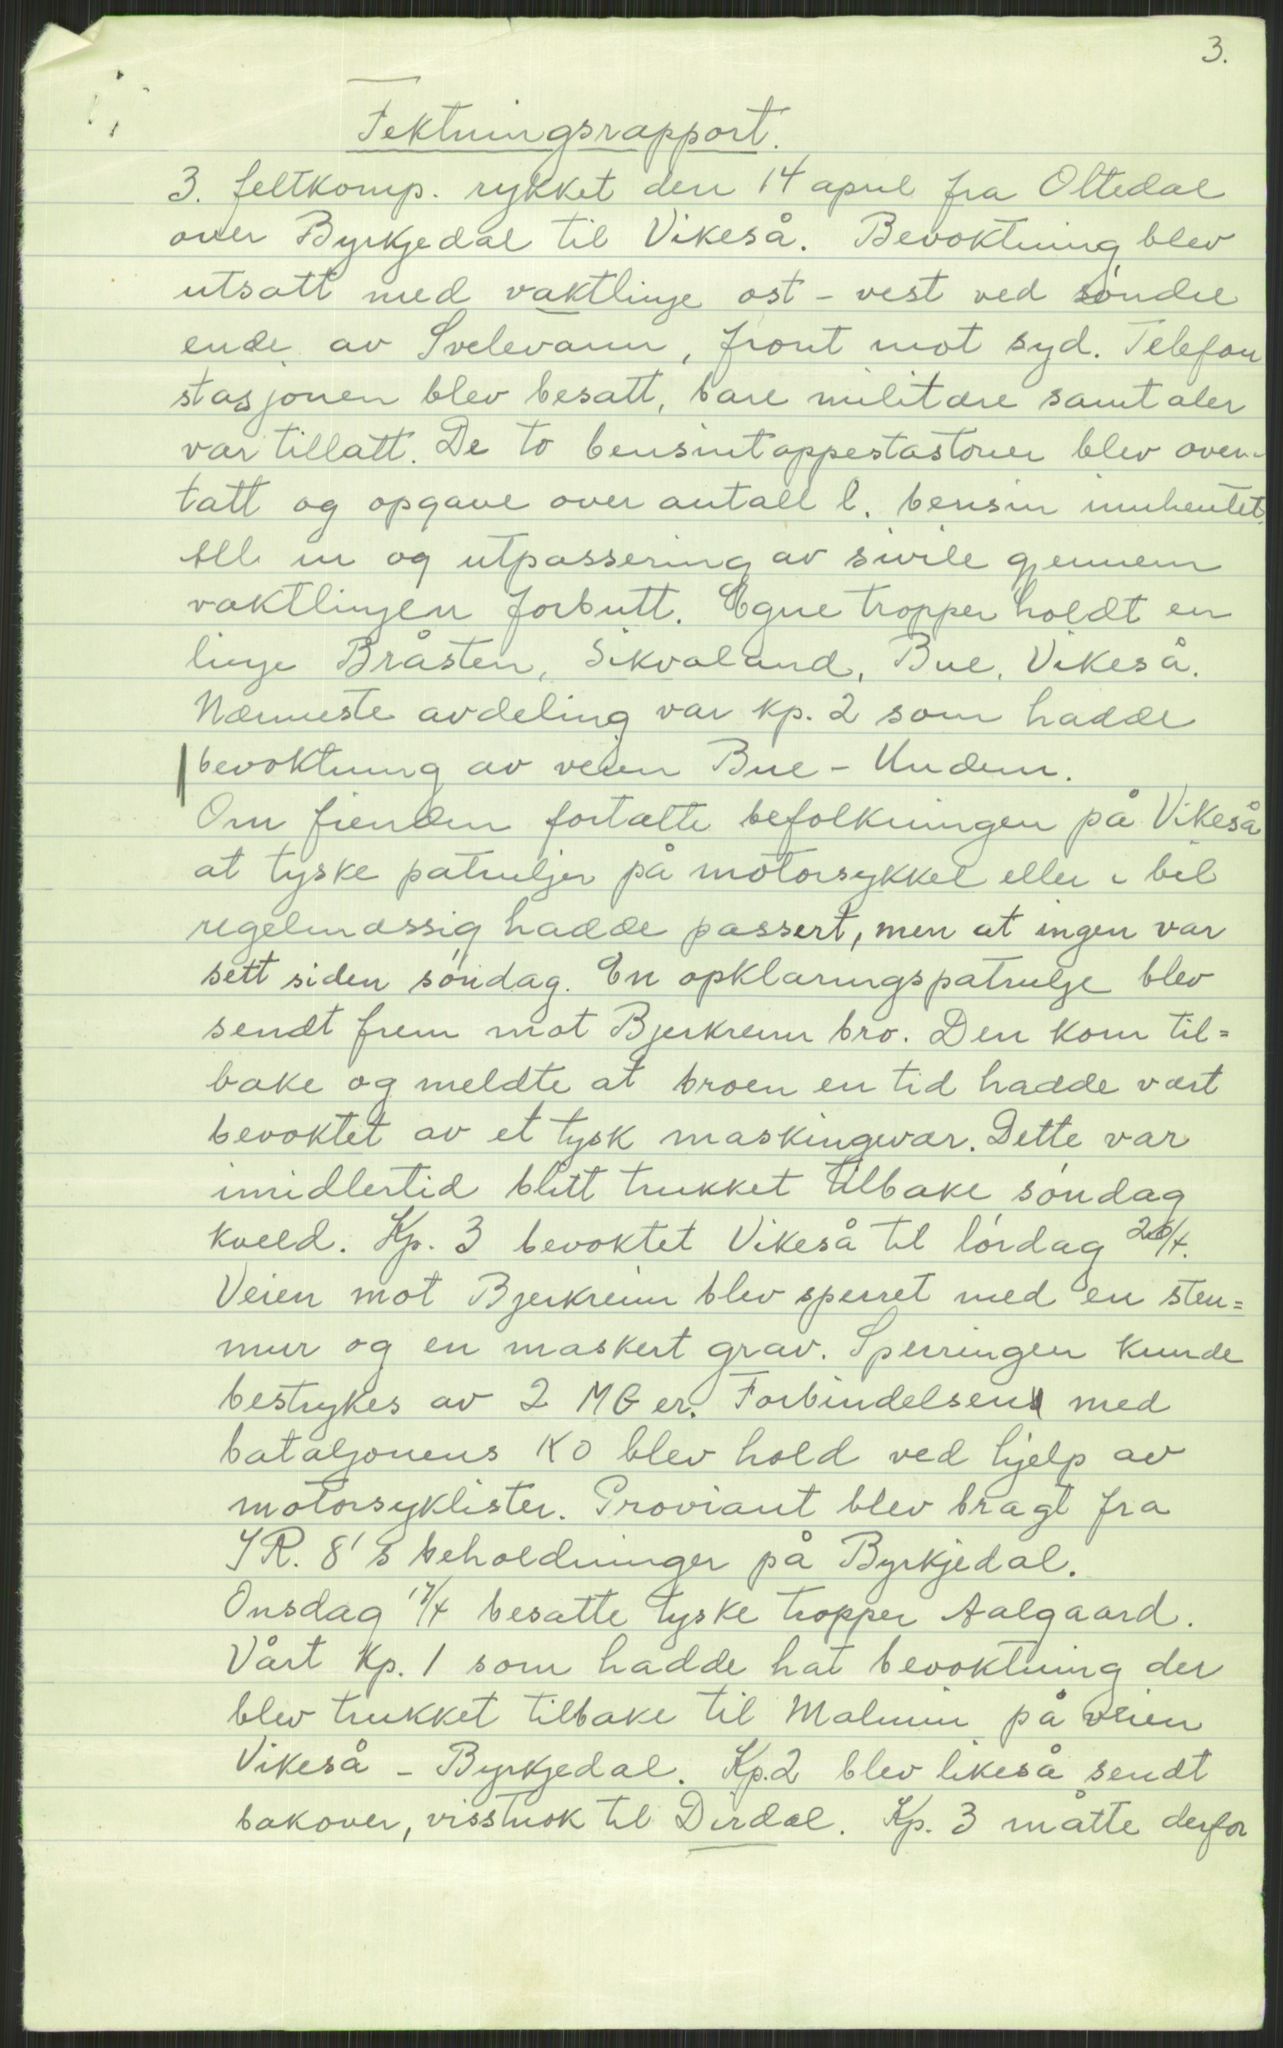 3.
Fektningsrapport.
3. feltkomp. rykket den 14 april fra Oltedal
over Byrkjedal til Vikeså. Bevoktning blev
utsatt med vaktlinje øst - vest ved søndre
ende av Svelevann, front mot syd. Telefon
stasjonen blev besatt, bare militære samtaler
var tillatt. De to bensintappestastoner blev over-
tatt og opgave over antall l. bensin innhentet.
All inn og utpassering av sivile gjennem
vaktlinjen forbutt. Egne tropper holdt en
linje Bråsten, Sikvaland, Bue, Vikeså.
Nærmeste avdeling var kp. 2 som hadde
bevoktning av veien Bue - Undem.
Om fienden fortalte befolkningen på Vikeså
at tyske patruljer på motorsykkel eller i bil
regelmæssig hadde passert, men at ingen var
sett siden søndag. En opklaringspatrulje blev
sendt frem mot Bjerkreim bro. Den kom til=
bake og meldte at broen en tid hadde vært
bevoktet av et tysk maskingevær. Dette var
imidlertid blitt trukket tilbake søndag
kveld. Kp. 3 bevoktet Vikeså til lørdag 20/4.
Veien mot Bjerkreim blev sperret med en sten=
mur og en maskert grav. Sperringen kunde
bestrykes av 2 MG er. Forbindelsen med
bataljonens KO blev hold ved hjelp av
motorsyklister. Proviant blev bragt fra
IR. 8's beholdninger på Byrkjedal.
Onsdag 17/4 besatte tyske tropper Aalgaard.
Vårt Kp. 1 som hadde hat bevoktning der
blev trukket tilbake til Malmin på veien
Vikeså - Byrkjedal. Kp. 2 blev likeså sendt
bakover, visstnok til Dirdal. Kp. 3 måtte derfor